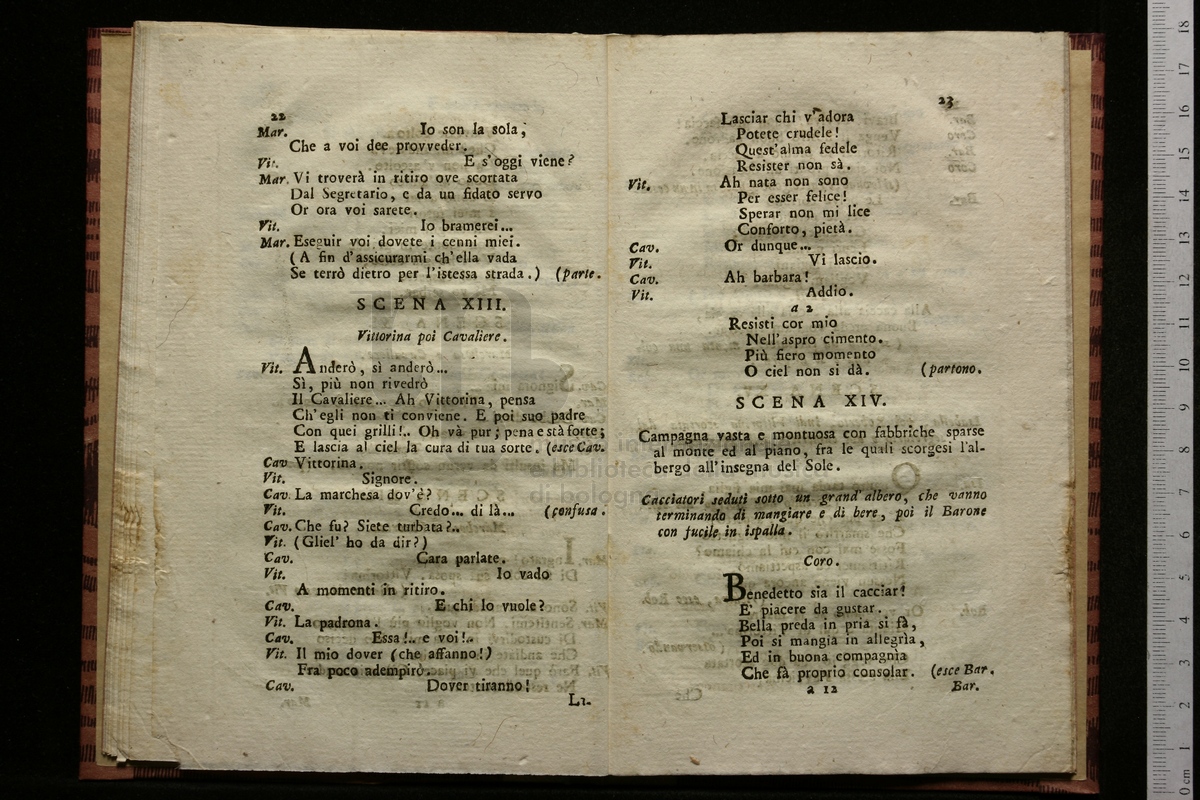 22
Mar. Io son la sola,
Che a voi dee provveder.
Vit. E s'oggi viene?
Mar. Vi troverà in ritiro ove scortata
Dal Segretario, e da un fidato servo
Or ora voi sarete.
Vit. Io bramerei...
Mar. Eseguir voi dovete i cenni miei.
(A fin d'assicurarmi ch'ella vada
Se terrò dietro per l'istessa strada.) (parte.
SCENA XIII.
Vittorina poi Cavaliere.
Vit. Anderò, sì anderò...
Sì, più non rivedrò
Il Cavaliere... Ah Vittorina, pensa
Ch'egli non ti conviene. E poi suo padre
Con quei grilli!.. Oh và pur; pena e stà forte;
E lascia al ciel la cura di tua sorte. (esce Cav.
Cav Vittorina.
Vit. Signore.
Cav. La marchesa dov'è?
Vit. Credo... di là... (confusa.
Cav. Che fu? Siete turbata?..
Vit. (Gliel' ho da dir?)
Cav. Cara parlate.
Vit. Io vado
A momenti in ritiro.
Cav. E chi lo vuole?
Vit. La padrona.
Cav. Essa!.. e voi!..
Vit. Il mio dover (che affanno!)
Fra poco adempirò.
Cav. Dover tiranno!
23
Lasciar chi v'adora
Potete crudele!
Quest'alma fedele
Resister non sà.
Vit. Ah nata non sono
Per esser felice!
Sperar non mi lice
Conforto, pietà.
Cav. Or dunque...
Vit. Vi lascio.
Cav. Ah barbara!
Vit. Addio.
a 2
Resisti cor mio
Nell'aspro cimento.
Più fiero momento
O ciel non si dà. (partono.
SCENA XIV.
Campagna vasta e montuosa con fabbriche sparse
al monte ed al piano, fra le quali scorgesi l'al-
bergo all'insegna del Sole.
Cacciatori seduti sotto un grand'albero, che vanno
terminando di mangiare e di bere, poi il Barone
con fucile in ispalla.
Coro.
Benedetto sia il cacciar!
E' piacere da gustar.
Bella preda in pria si fà,
Poi si mangia in allegrìa,
Ed in buona compagnìa
Che fà proprio consolar. (esce Bar.
a 12 Bar.